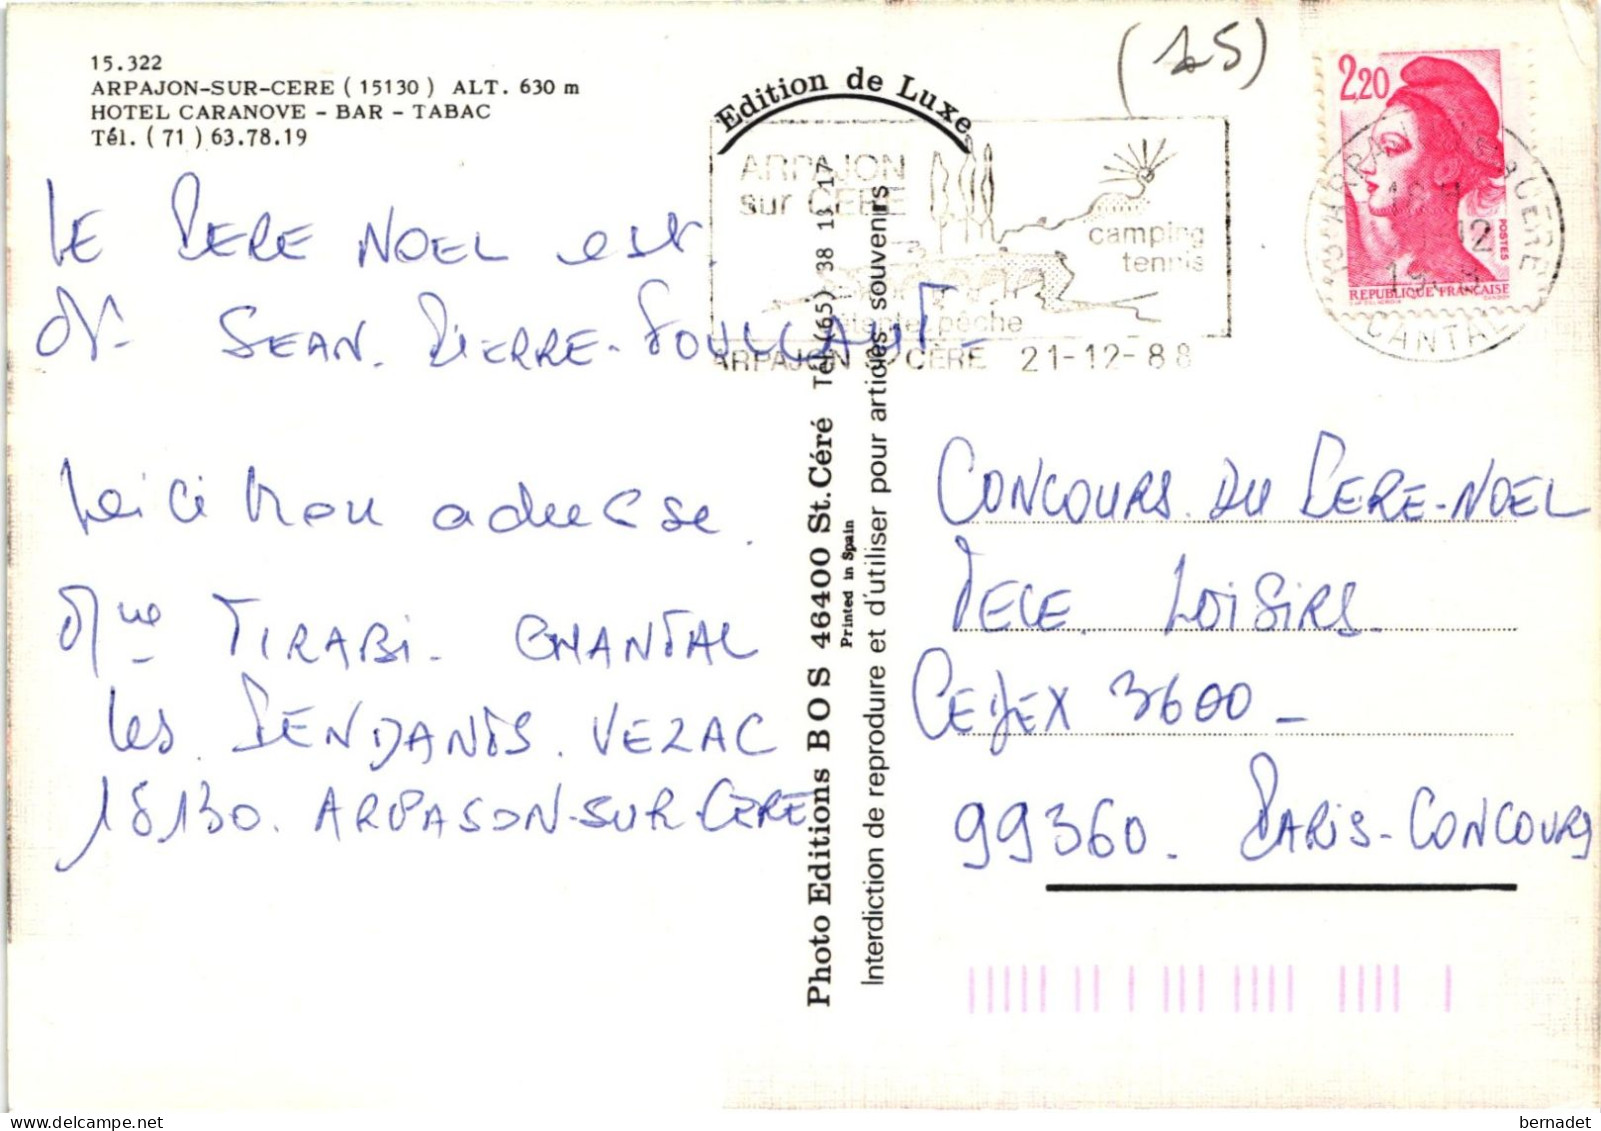 15.322
ARPAJON-SUR-CERE (15130) ALT. 630 m
HOTEL CARANOVE - BAR - TABAC
Tél. (71) 63.78.19
LE PERE NOEL est
Mr JEAN. PIERRE-FOULCAUT_
Voici mon adresse.
Mme TIRABI. CHANTAL
Les PENDANTS. VEZAC
15130. ARPAJON-SUR-CERE
Edition de Luxe
Photo Editions BOS 46400 St. Céré Tél. (65) 38 13 17
Printed in Spain
Interdiction de reproduire et d'utiliser pour articles souvenirs
(15)
ARPAJON
sur CERE
camping
tennis
détente pêche
ARPAJON S CÈRE 21-12-88
2,20
POSTES
REPUBLIQUE FRANÇAISE
CANTAL
CONCOURS. DU PERE-NOEL
TELE LOISIRS.
CEDEX 3600_
99360. PARIS-CONCOURS
bernadet